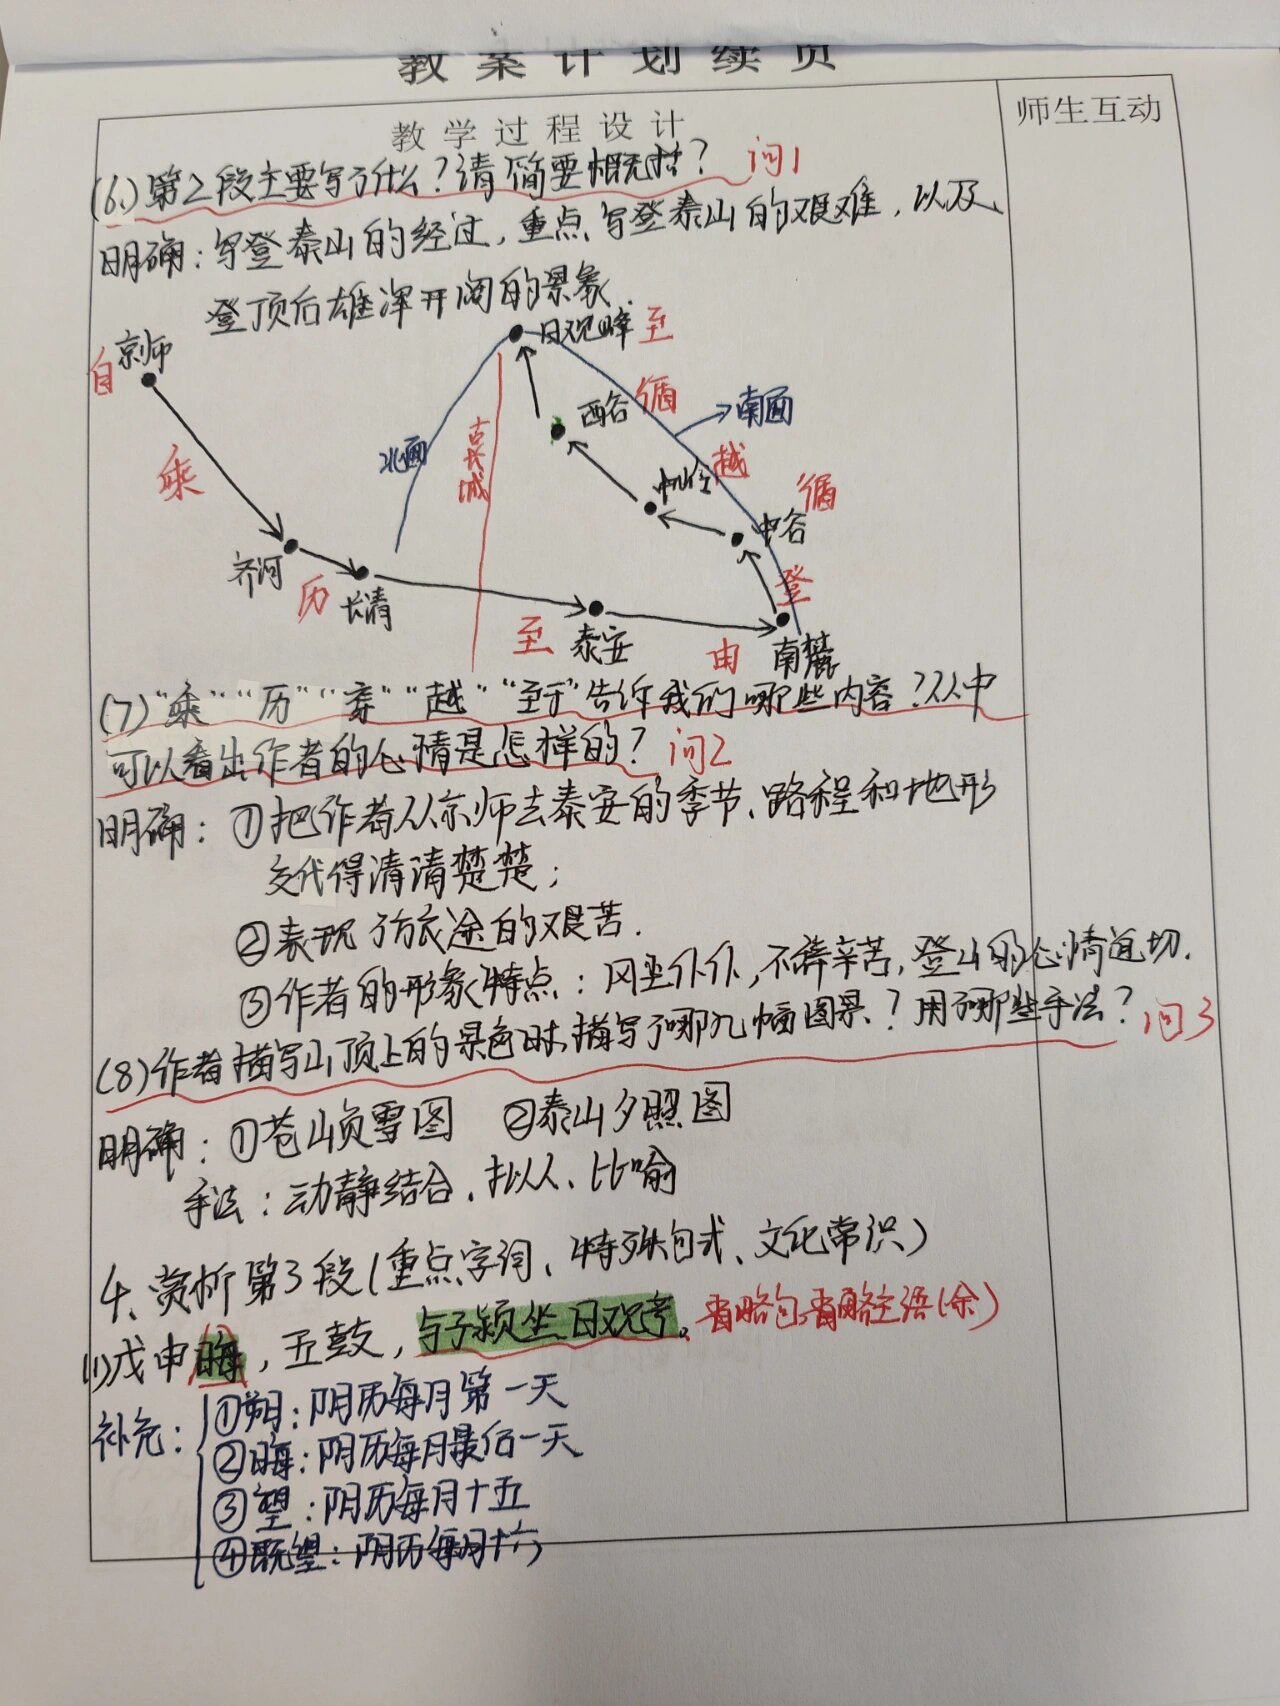 教案计划续页
教学过程设计
师生互动
(6)第2段主要写了什么?请简要概括? 问1
明确:写登泰山的经过,重点写登泰山的艰难,以及
登顶后雄浑开阔的景象.
日观峰 至
自 京师
西谷 循
南面
北面
古长城
乘
中岭 越
循
中谷
齐河
历 长清
登
至 泰安
由 南麓
(7)“乘”“历”“穿”“越”“至于”告诉我们哪些内容?从中
可以看出作者的心情是怎样的? 问2
明确:①把作者从京师去泰安的季节、路程和地形
交代得清清楚楚;
②表现了旅途的艰苦.
③作者的形象特点:风尘仆仆,不辞辛苦,登山的心情迫切.
(8)作者描写山顶上的景色时,描写了哪几幅图景?用了哪些手法? 问3
明确:①苍山负雪图 ②泰山夕照图
手法:动静结合、拟人、比喻
4、赏析第3段(重点字词、特殊句式、文化常识)
(1)戊申晦,五鼓,与子颍坐日观亭。省略句,省略主语(余)
补充:①朔:阴历每月第一天
②晦:阴历每月最后一天
③望:阴历每月十五
④既望:阴历每月十六